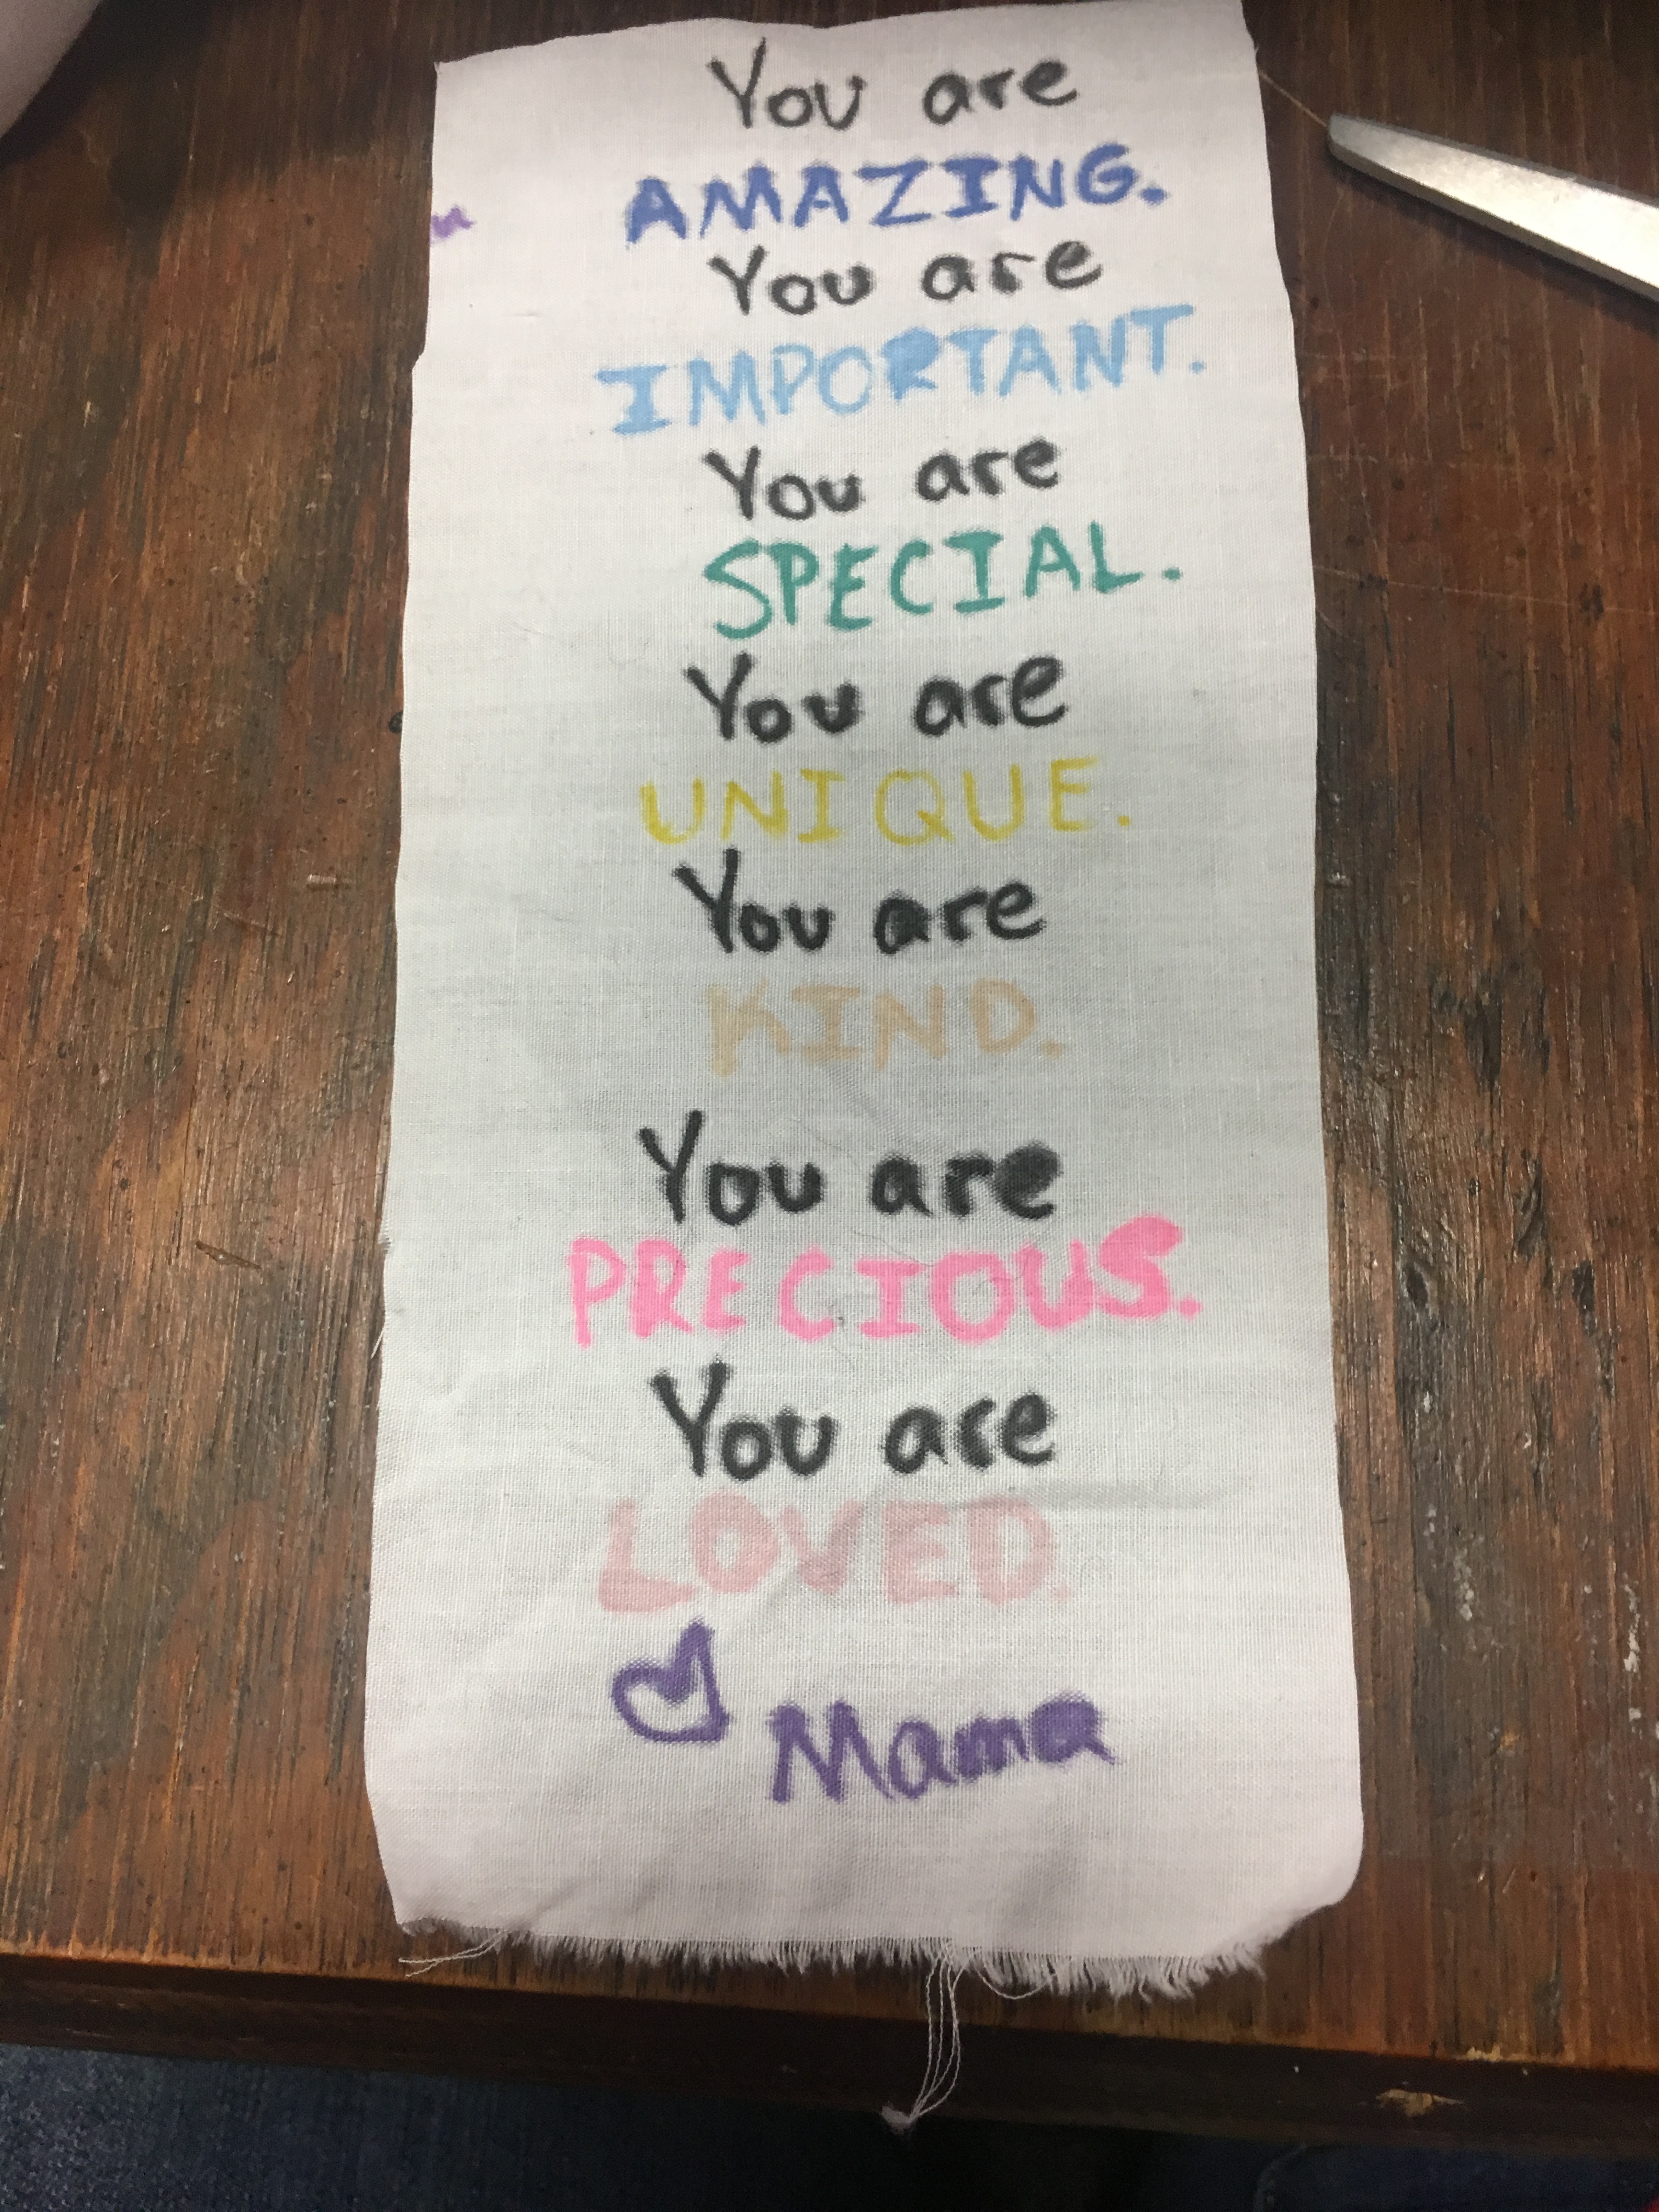 You are
AMAZING.
You are
IMPORTANT.
You are
SPECIAL.
You are
UNIQUE.
You are
KIND.
You are
PRECIOUS.
You are
LOVED.
Mama